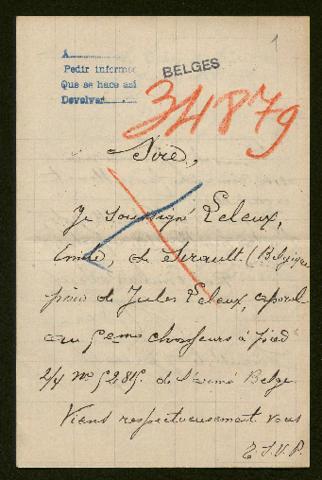 1
A
Pedir informes
Que se hace así
Devolver
BELGES
34879
Sire,
Je soussigné Leleux,
Emile, de Sirault (Belgique
père de Jules Leleux, caporal
au 5eme chasseurs à pied
2/4 No 5285. de l'armé Belge
Viens respectueusement vous
T.S.V.P.